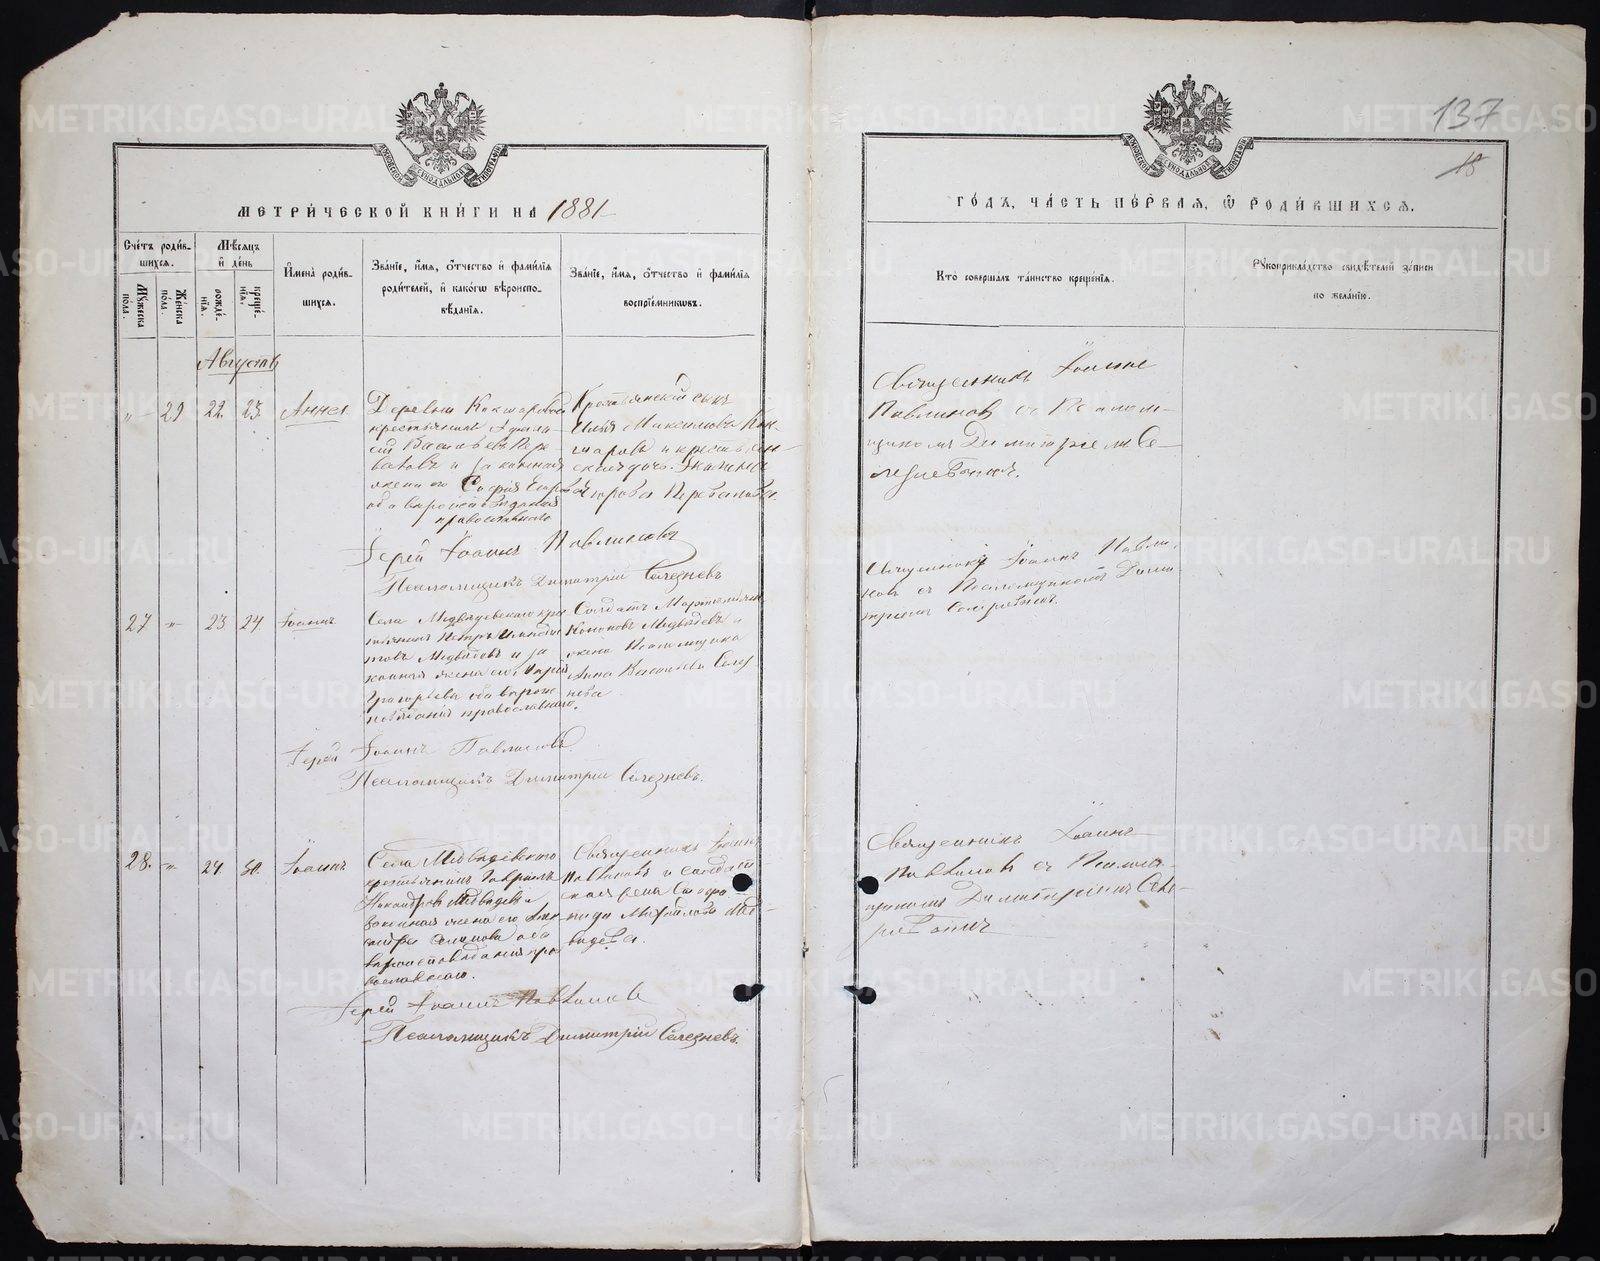 МЕТРИ́ЧЕСКОЙ КНИ́ГИ НА 1881
Сче́тъ роди́в-
шихся.
Мѣ́сяцъ
и҆ де́нь
И҆мена̀ роди́в-
шихся.
Зва́нїе, и҆́мя, ѻ҆́тчество и҆ фамі́лїя
роди́телей, и҆ како́гѡ вѣроиспо-
вѣ́данїя.
Зва́нїе, и҆́мя, ѻ҆́тчество и҆ фамі́лїя
воспрїе́мниковъ.
Мꙋ́жеска
по́ла.
Же́нска
по́ла.
рожде́-
нїя.
креще́-
нїя.
Августъ
„ 29 22. 23. Анна
Деревни Кокшаровой
крестьянинъ
Васильевъ Пере
валовъ и законная
жена его Софія Егорова
оба вѣроисповѣданія
православнаго
Крестьянскій сынъ
Илья Максимовъ Кок
шаровъ и крестьян-
ская дочь
Егорова Перевалова.
Іерей Іоаннъ Павлиновъ
Псаломщикъ Димитрій Селезневъ
27 „ 23 24. Іоаннъ
Села Медвѣдевскаго кре
стьянинъ Петръ
Медвѣдевъ и за
конная жена его Марія
Григорьева оба вѣроис
повѣданія православнаго.
Солдатъ
Кононовъ Медвѣдевъ и
жена Псаломщика
Анна Васильева Селез
нева
Іерей Іоаннъ Павлиновъ
Псаломщикъ Димитрій Селезневъ.
28. „ 24. 30. Іоаннъ
Села Медвѣдевскаго
крестьянинъ Гавріилъ
Никандровъ Медвѣдевъ и
законная жена его
оба
вѣроисповѣданія пра
вославнаго.
Священникъ Іоаннъ
Павлиновъ и солдат
ская
Михайлова Мед-
вѣдева.
Іерей Іоаннъ Павлиновъ
Псаломщикъ Димитрій Селезневъ.
137
18
ГО́ДЪ, ЧА́СТЬ ПЕ́РВАЯ, Ѡ҆ РОДИ́ВШИХСЯ.
Кто̀ соверша́лъ та́инство креще́нїя.
Рꙋкоприкла́дство свидѣ́телей за́писи
по жела́нїю.
Священникъ Іоаннъ
Павлиновъ съ Псалом-
щикомъ Димитріемъ Се-
лезневымъ.
Священникъ Іоаннъ Павли
новъ съ Псаломщикомъ Дими
тріемъ Селезневымъ.
Священникъ Іоаннъ
Павлиновъ съ Псалом-
щикомъ Димитріемъ Селе-
зневымъ